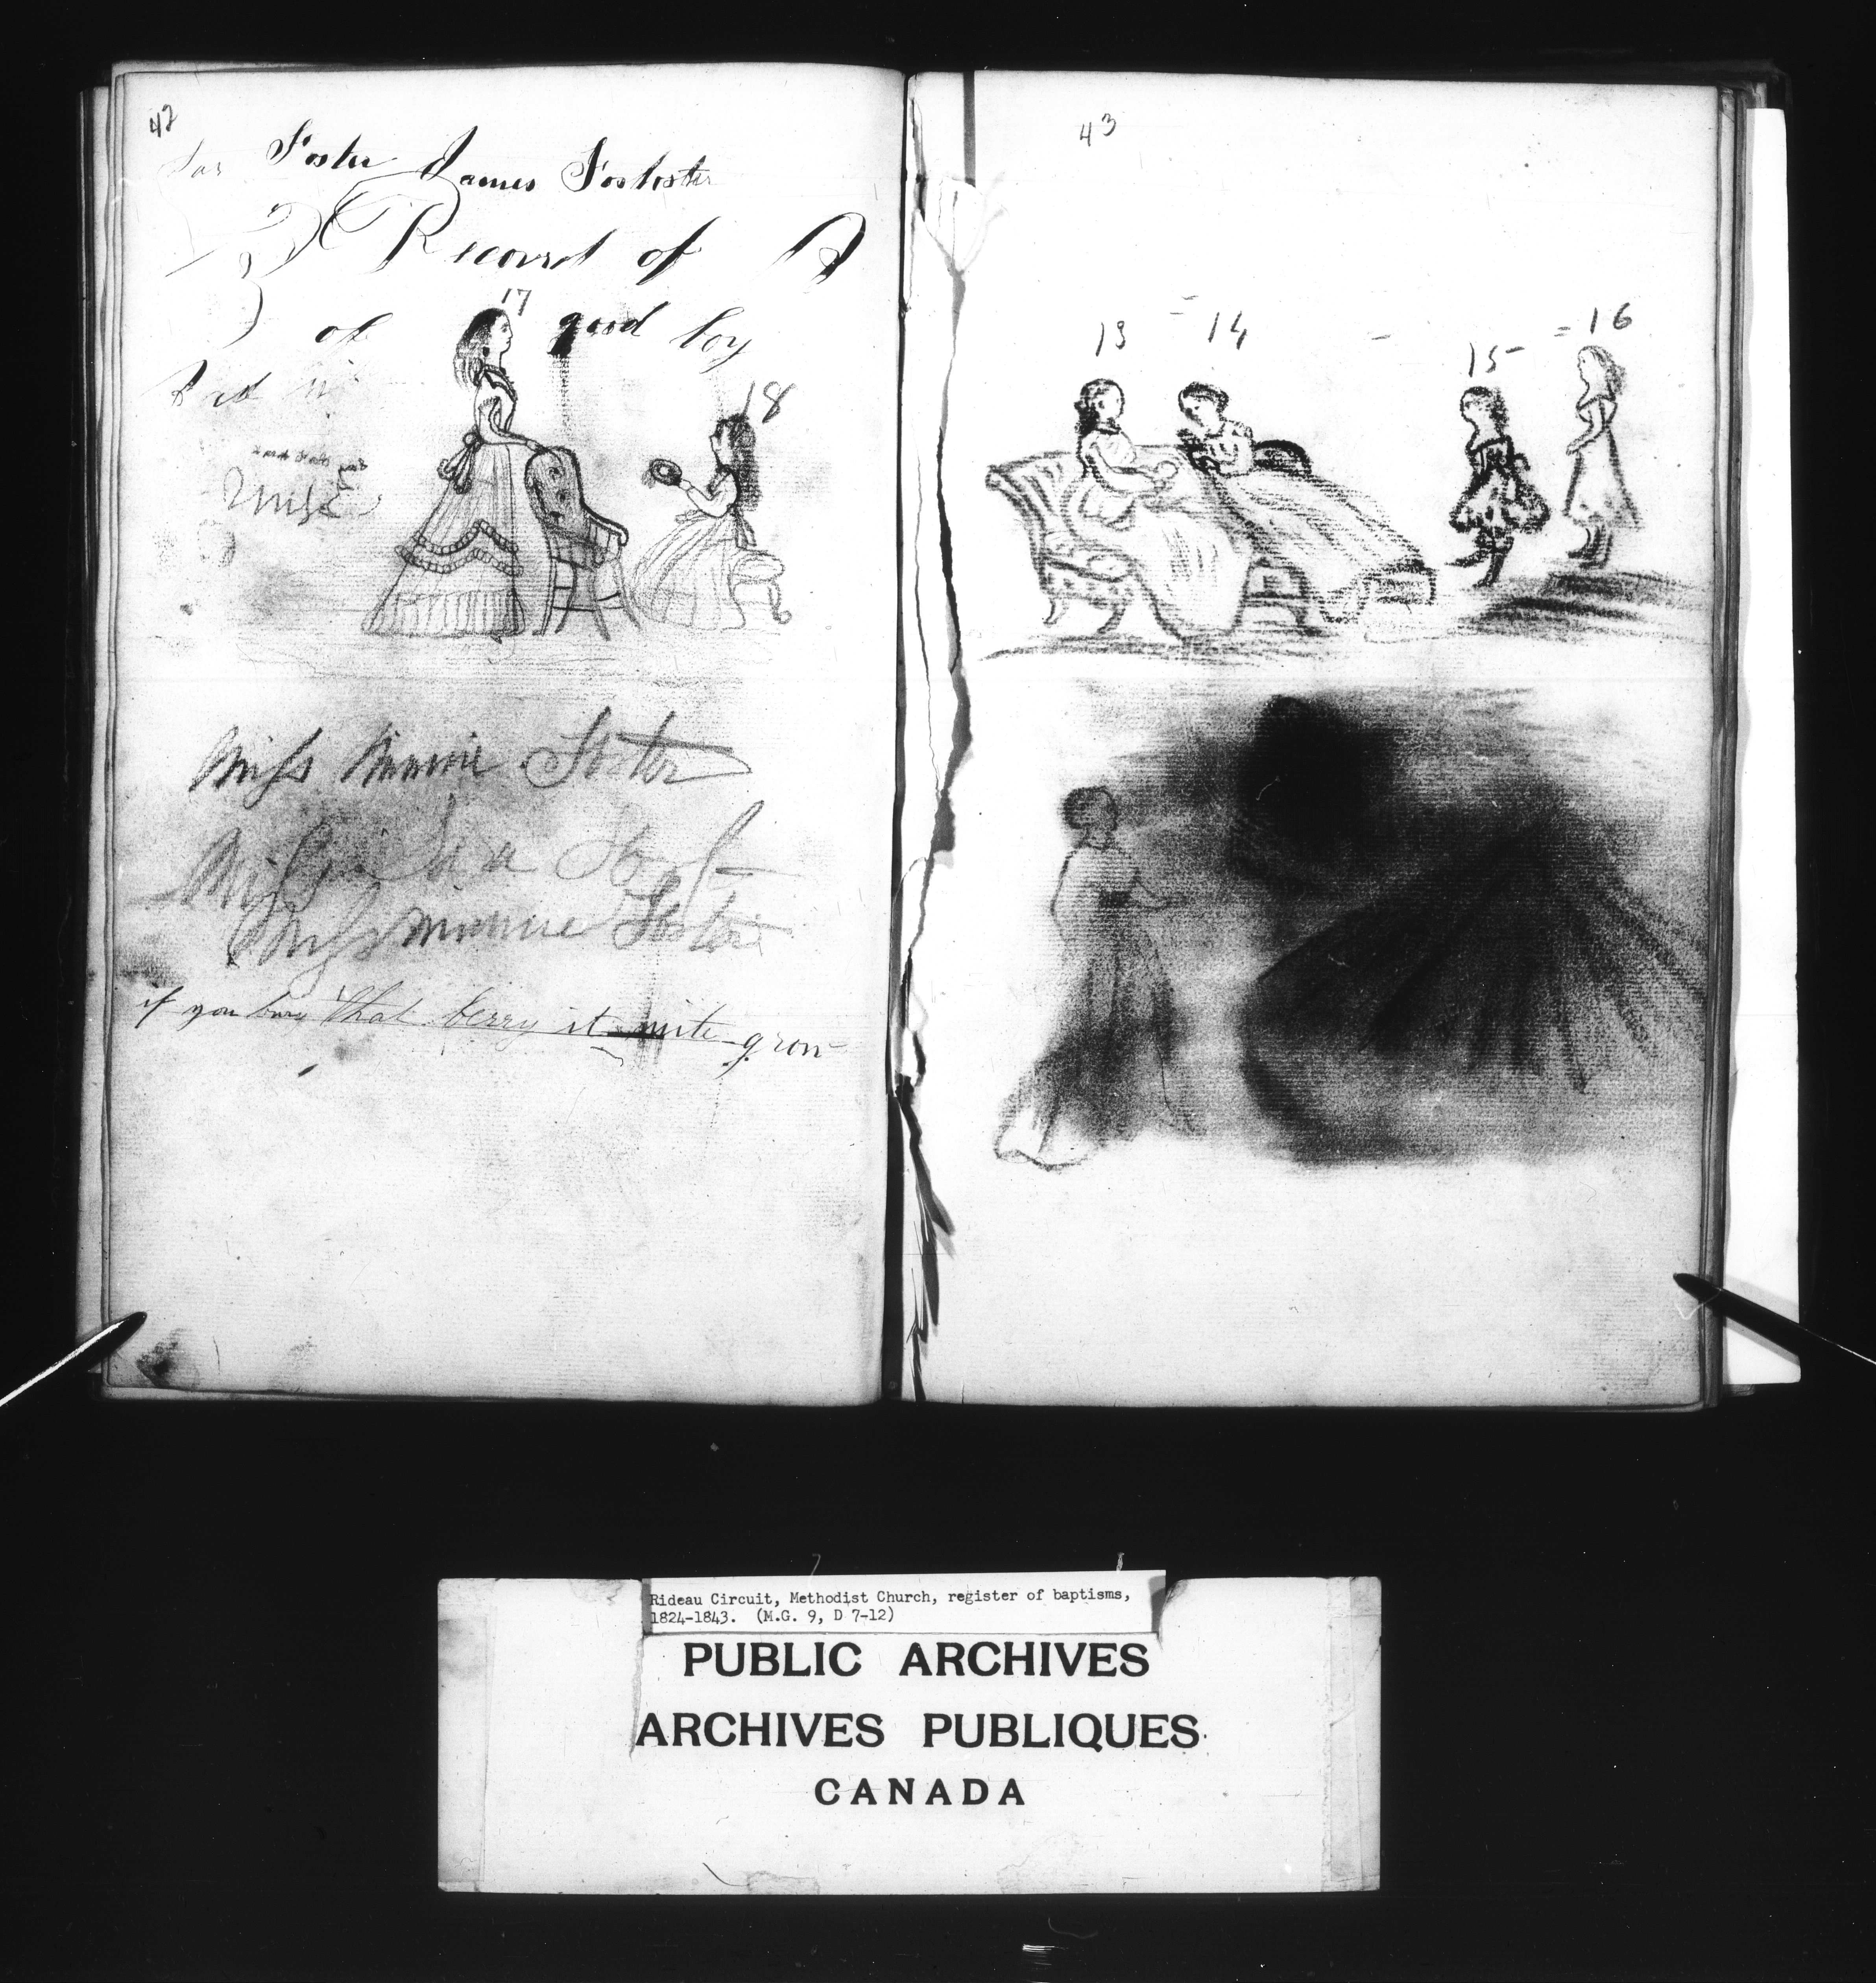 42
Jas Foster James Fosfoster
Record of A
17
of good boy
Bad
18
Miss
Miss Minnie Foster
Miss
Miss Minnie Foster
if you bury that berry it mite grow
43
13 = 14 - 15 = 16
Rideau Circuit, Methodist Church, register of baptisms,
1824-1843. (M.G. 9, D 7-12)
PUBLIC ARCHIVES
ARCHIVES PUBLIQUES
CANADA